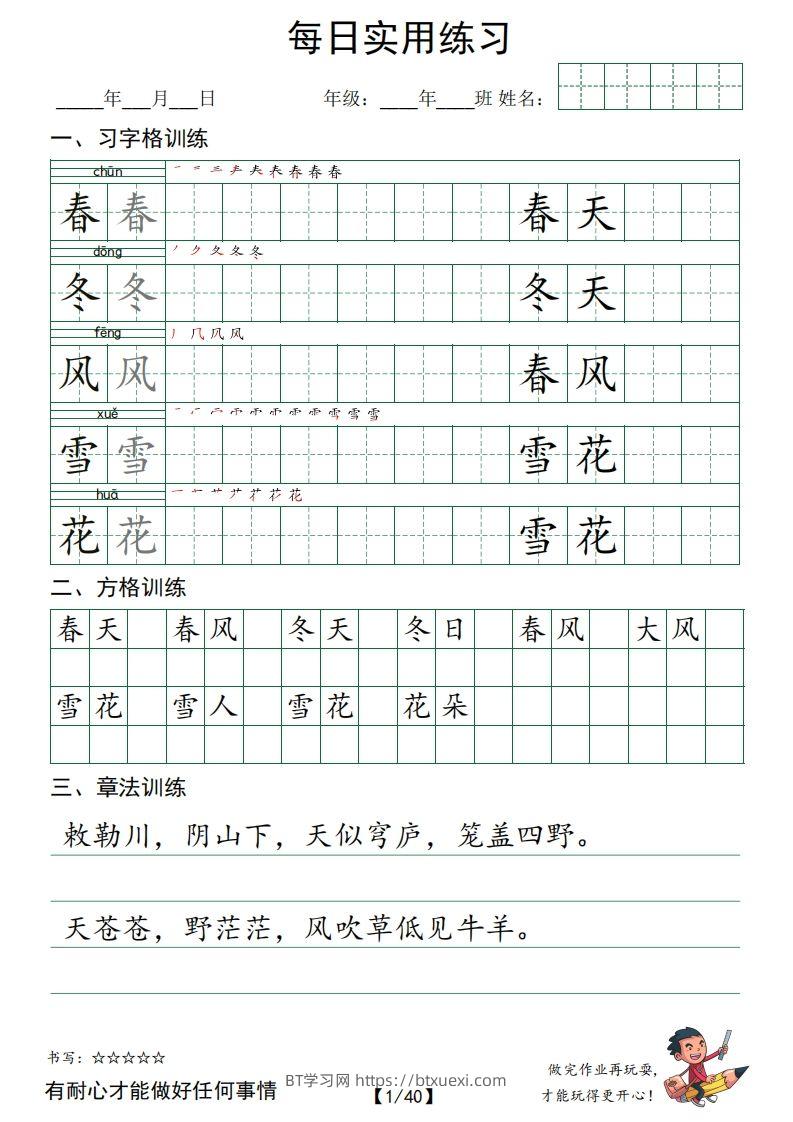 每日实用练习
_____年___月___日 年级：____年____班 姓名：
一、习字格训练
chūn
春 春 春 天
dōng
冬 冬 冬 天
fēng
风 风 春 风
xuě
雪 雪 雪 花
huā
花 花 雪 花
二、方格训练
春天 春风 冬天 冬日 春风 大风
雪花 雪人 雪花 花朵
三、章法训练
敕勒川，阴山下，天似穹庐，笼盖四野。
天苍苍，野茫茫，风吹草低见牛羊。
书写：☆☆☆☆☆
有耐心才能做好任何事情
BT学习网 https://btxuexi.com
【1/40】
做完作业再玩耍，
才能玩得更开心！